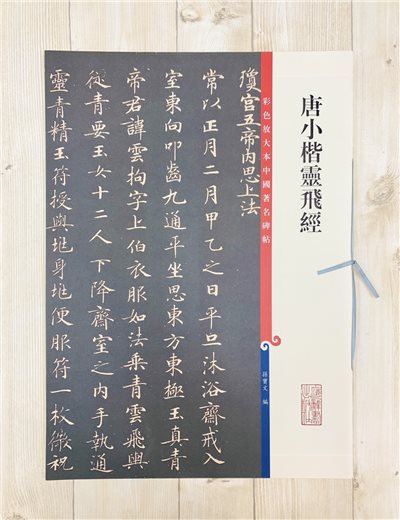 唐小楷靈飛經
彩色放大本中國著名碑帖
孫寶文 編
瓊宮五帝内思上法
常以正月二月甲乙之日平旦沐浴齋戒入
室東向叩齒九通平坐思東方東極玉真青
帝君諱雲拘字上伯衣服如法乘青雲飛輿
從青要玉女十二人下降齋室之内手執通
靈青精玉符授與兆身兆便服符一枚微祝